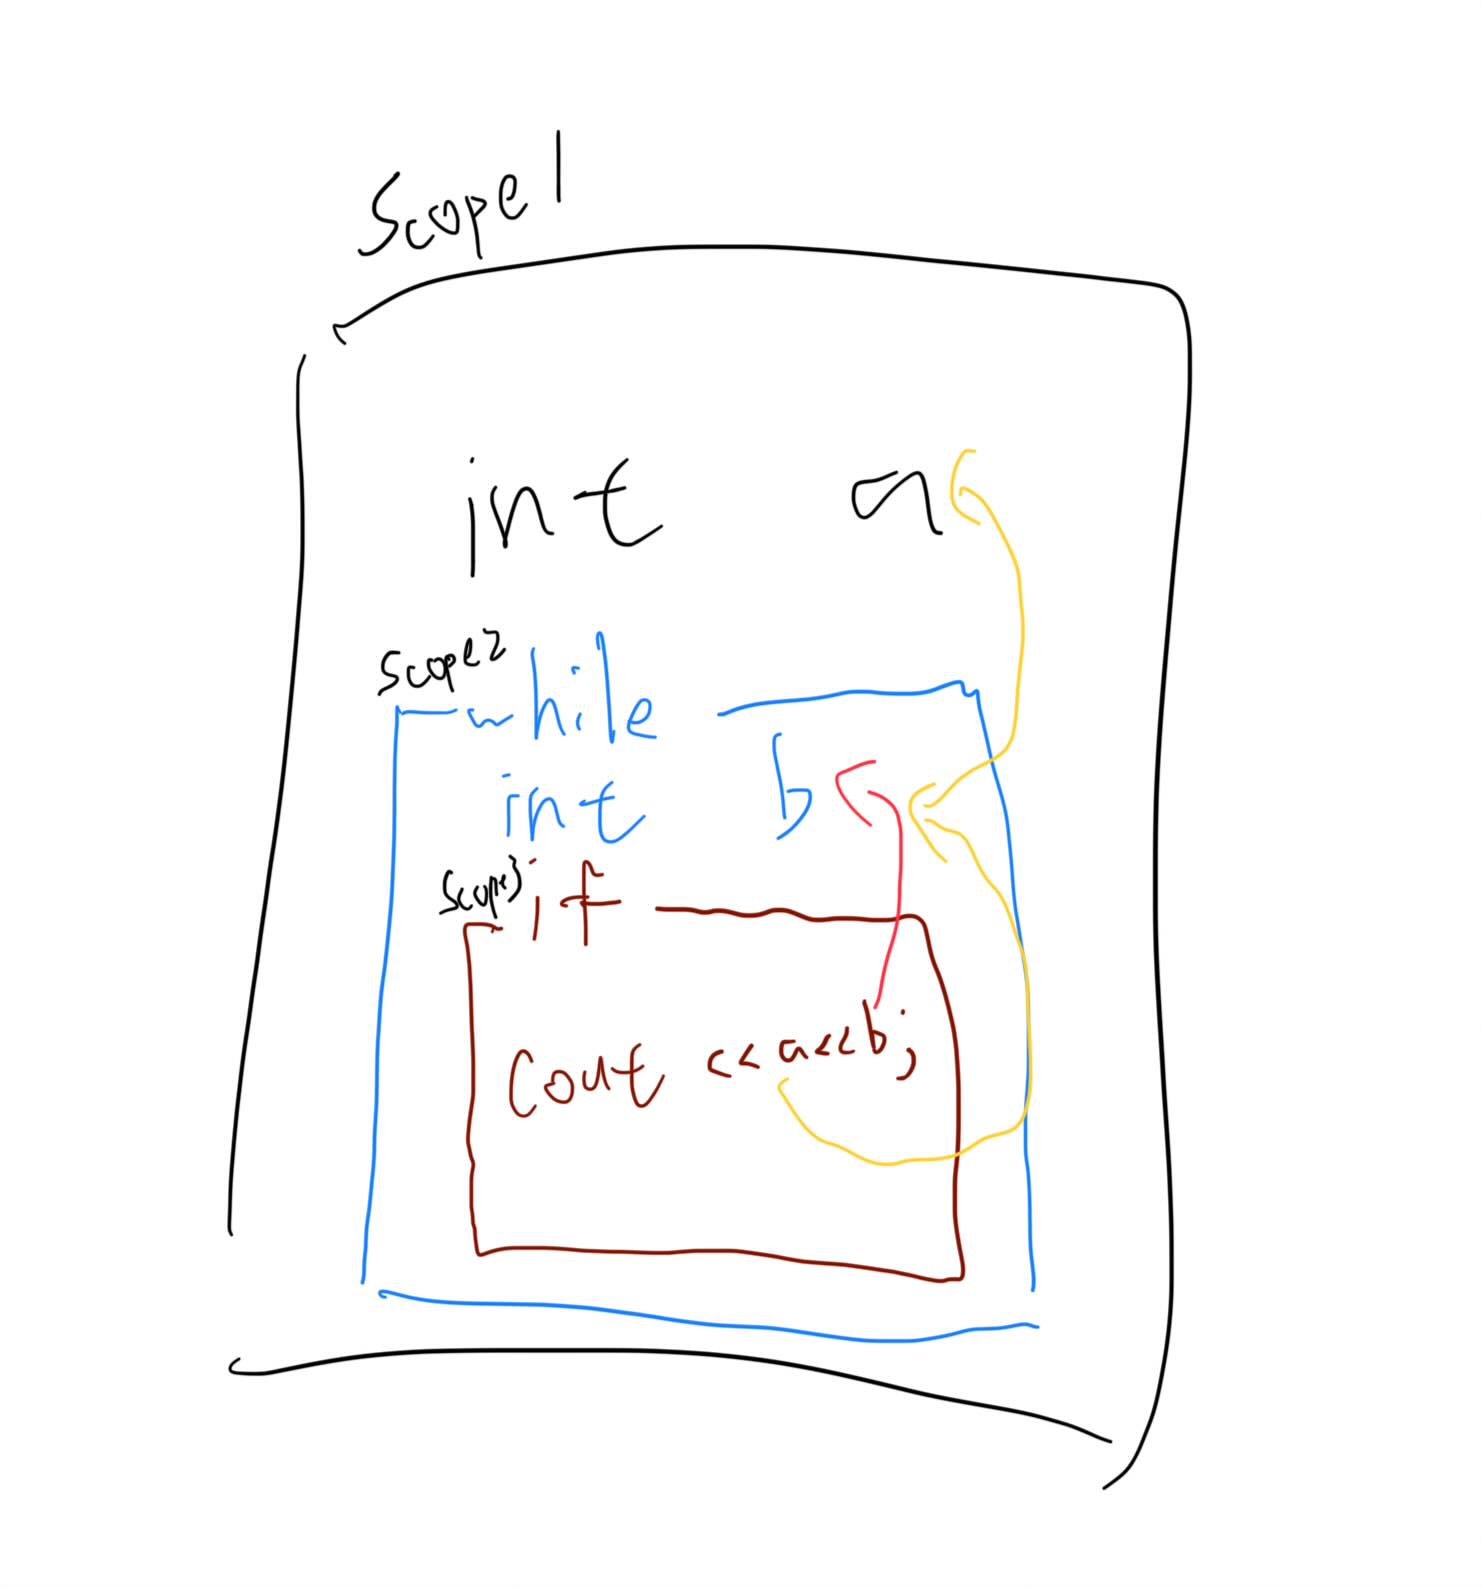 Scope1
int a
Scope2
while
int b
Scope3
if
Cout <<a<<b;